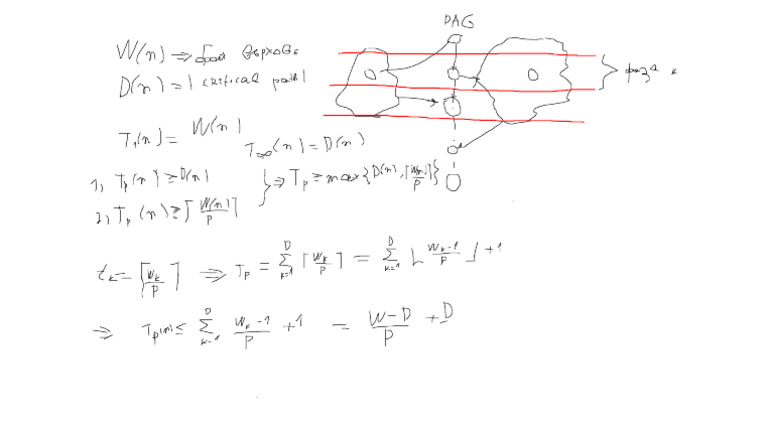 DAG
W(n) => брой върхове
D(n) = | critical path |
фаза к
T₁(n) = W(n)
T∞(n) = D(n)
1) Tₚ(n) ≥ D(n)
2) Tₚ(n) ≥ ⌈W(n)/P⌉
} => Tₚ ≥ max{D(n), ⌈W(n)/P⌉}
tₖ = ⌈Wₖ/P⌉ => Tₚ = ∑ₖ₌₁ᴰ ⌈Wₖ/P⌉ = ∑ₖ₌₁ᴰ ⌊(Wₖ-1)/P⌋ + 1
=> Tₚ(n) ≤ ∑ₖ₌₁ᴰ (Wₖ-1)/P + 1 = (W-D)/P + D